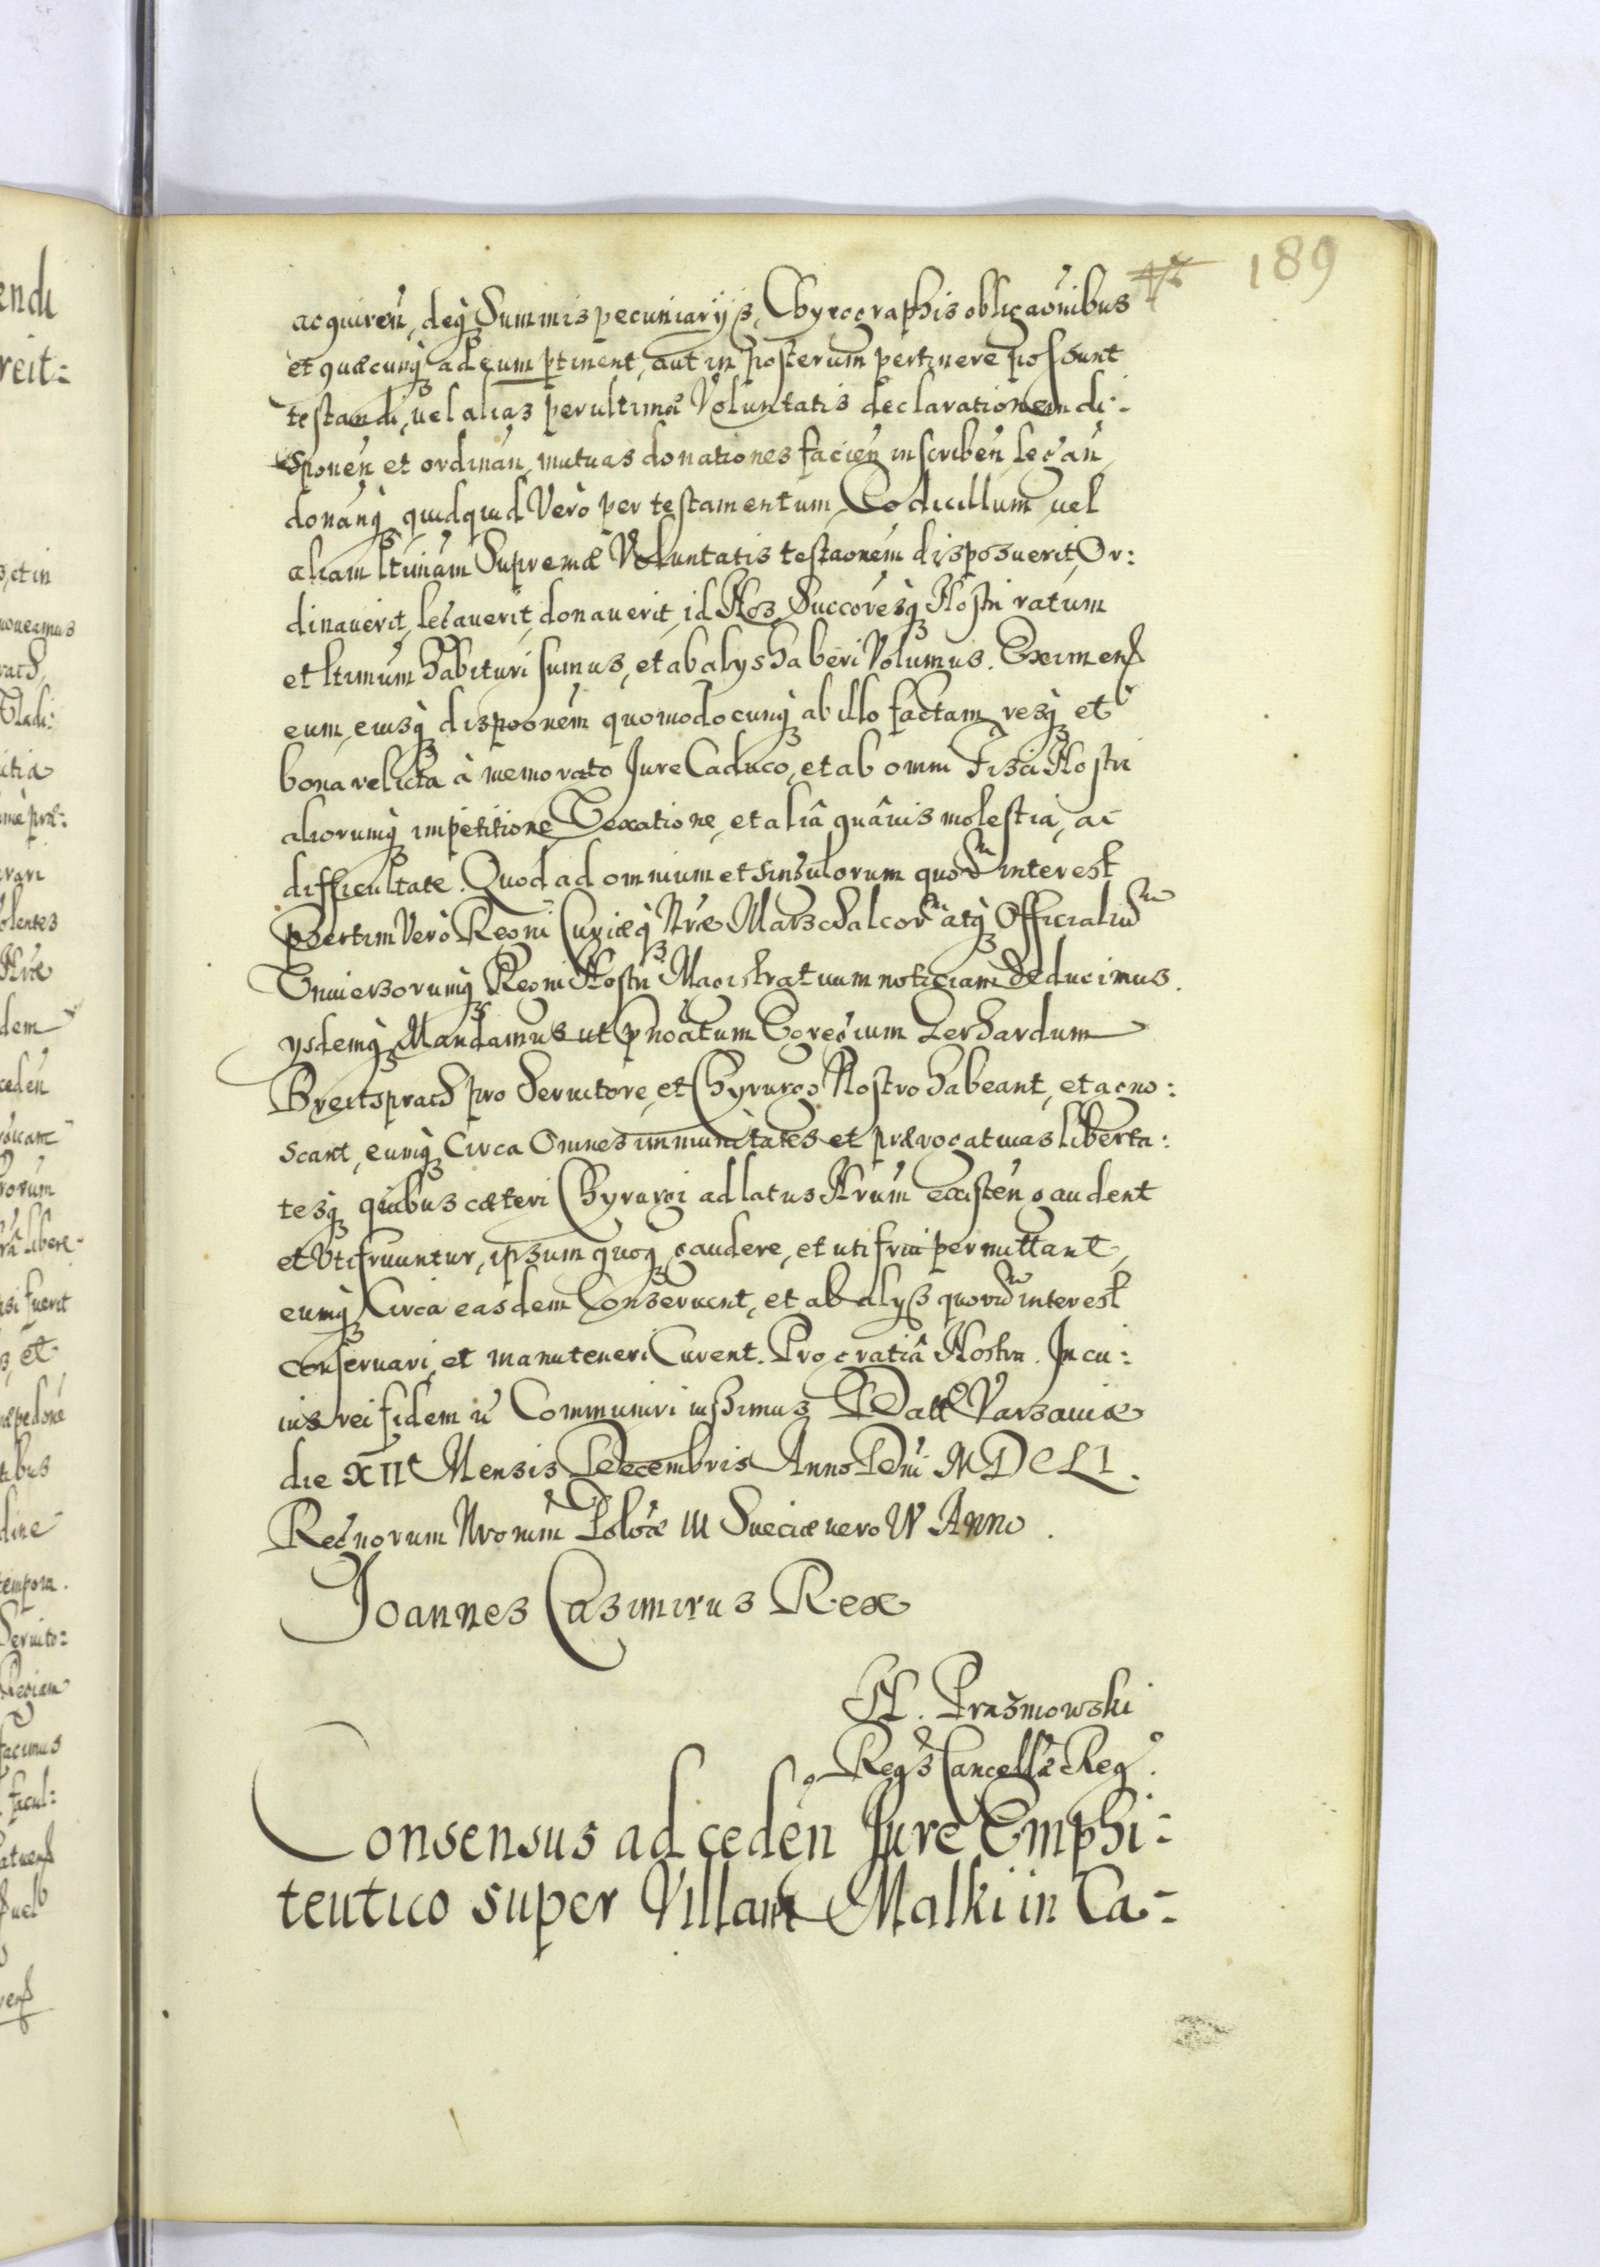 189
acquiren, deq Summis pecuniarijs, Chyrographis obligaonibus
et quæcunq ad eum ptinent, aut in posterum pertinere possunt
testandi, uel alias per ultimæ Voluntatis declarationem di:
sponen et ordinan, mutuas donationes facien inscriben legan
donanq quidquid Vero per testamentum Codicillum uel
aliam ltimam Supremæ Voluntatis testaonem disposuerit, Or:
dinauerit, legauerit, donauerit, id Nos Succoresq Nostri ratum
et ltimum habituri sumus, et ab alys haberi Volumus. Eximen
eum, eiusq dispoonem quomodocunq ab illo factam, resq et
bona relicta à memorato Jure Caduco, et ab omni Fisci Nostri
aliorumq impetitione Vexatione, et aliâ quâuis molestia, ac
difficultate. Quod ad omnium et singulorum quor interest
psertim Vero Regni Curiæq Nræ Marschalcor atq Officialiu
Vniuersorumq Regni Nostri Magistratuum noticiam deducimus.
ysdemq Mandamus ut pnoatum Egregium Gerhardum
Breitsprach pro Seruitore, et Chyrurgo Nostro habeant, et agno:
scant, eumq Circa Omnes immunitates et prærogatiuas liberta:
tesq quibus cæteri Chyrurgi ad latus Nrum existen gaudent
et Vti fruuntur, ipsum quoq gaudere, et uti frui permittant,
eumq Circa easdem Conseruent, et ab alyß quorum interest
conseruari, et manuteneri Curent. Pro gratiâ Nostra. In cu:
ius rei fidem Communiri iußimus Datt Varsauiæ
die XII Mensis Decembris Anno Dni MDCLI.
Regnorum Nrorum Poloæ III Sueciæ uero IV Anno.
Joannes Casimirus Rex
N. Prazmowski
Regs Cancellæ Reg.
Consensus ad ceden Jure Emphi:
teutico super Villam Malki in Ca: